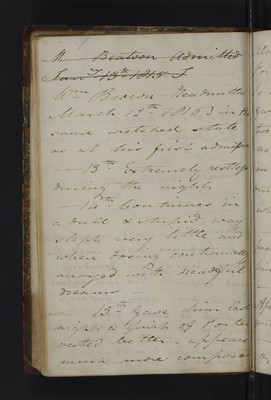 M Beatson Admitted
Jany 13th 1815
Wm Beacon Readmitted
March 12th 1816 in the
same wretched state
as at his first admission
— 13th Extremely restless
during the night
14th Continues in
a dull & stupid way
slept very little and
when dosing continually
annoyed with dreadful
dreams
15th Gave him last
night a pint of Porter
rested better. appears
much more composed